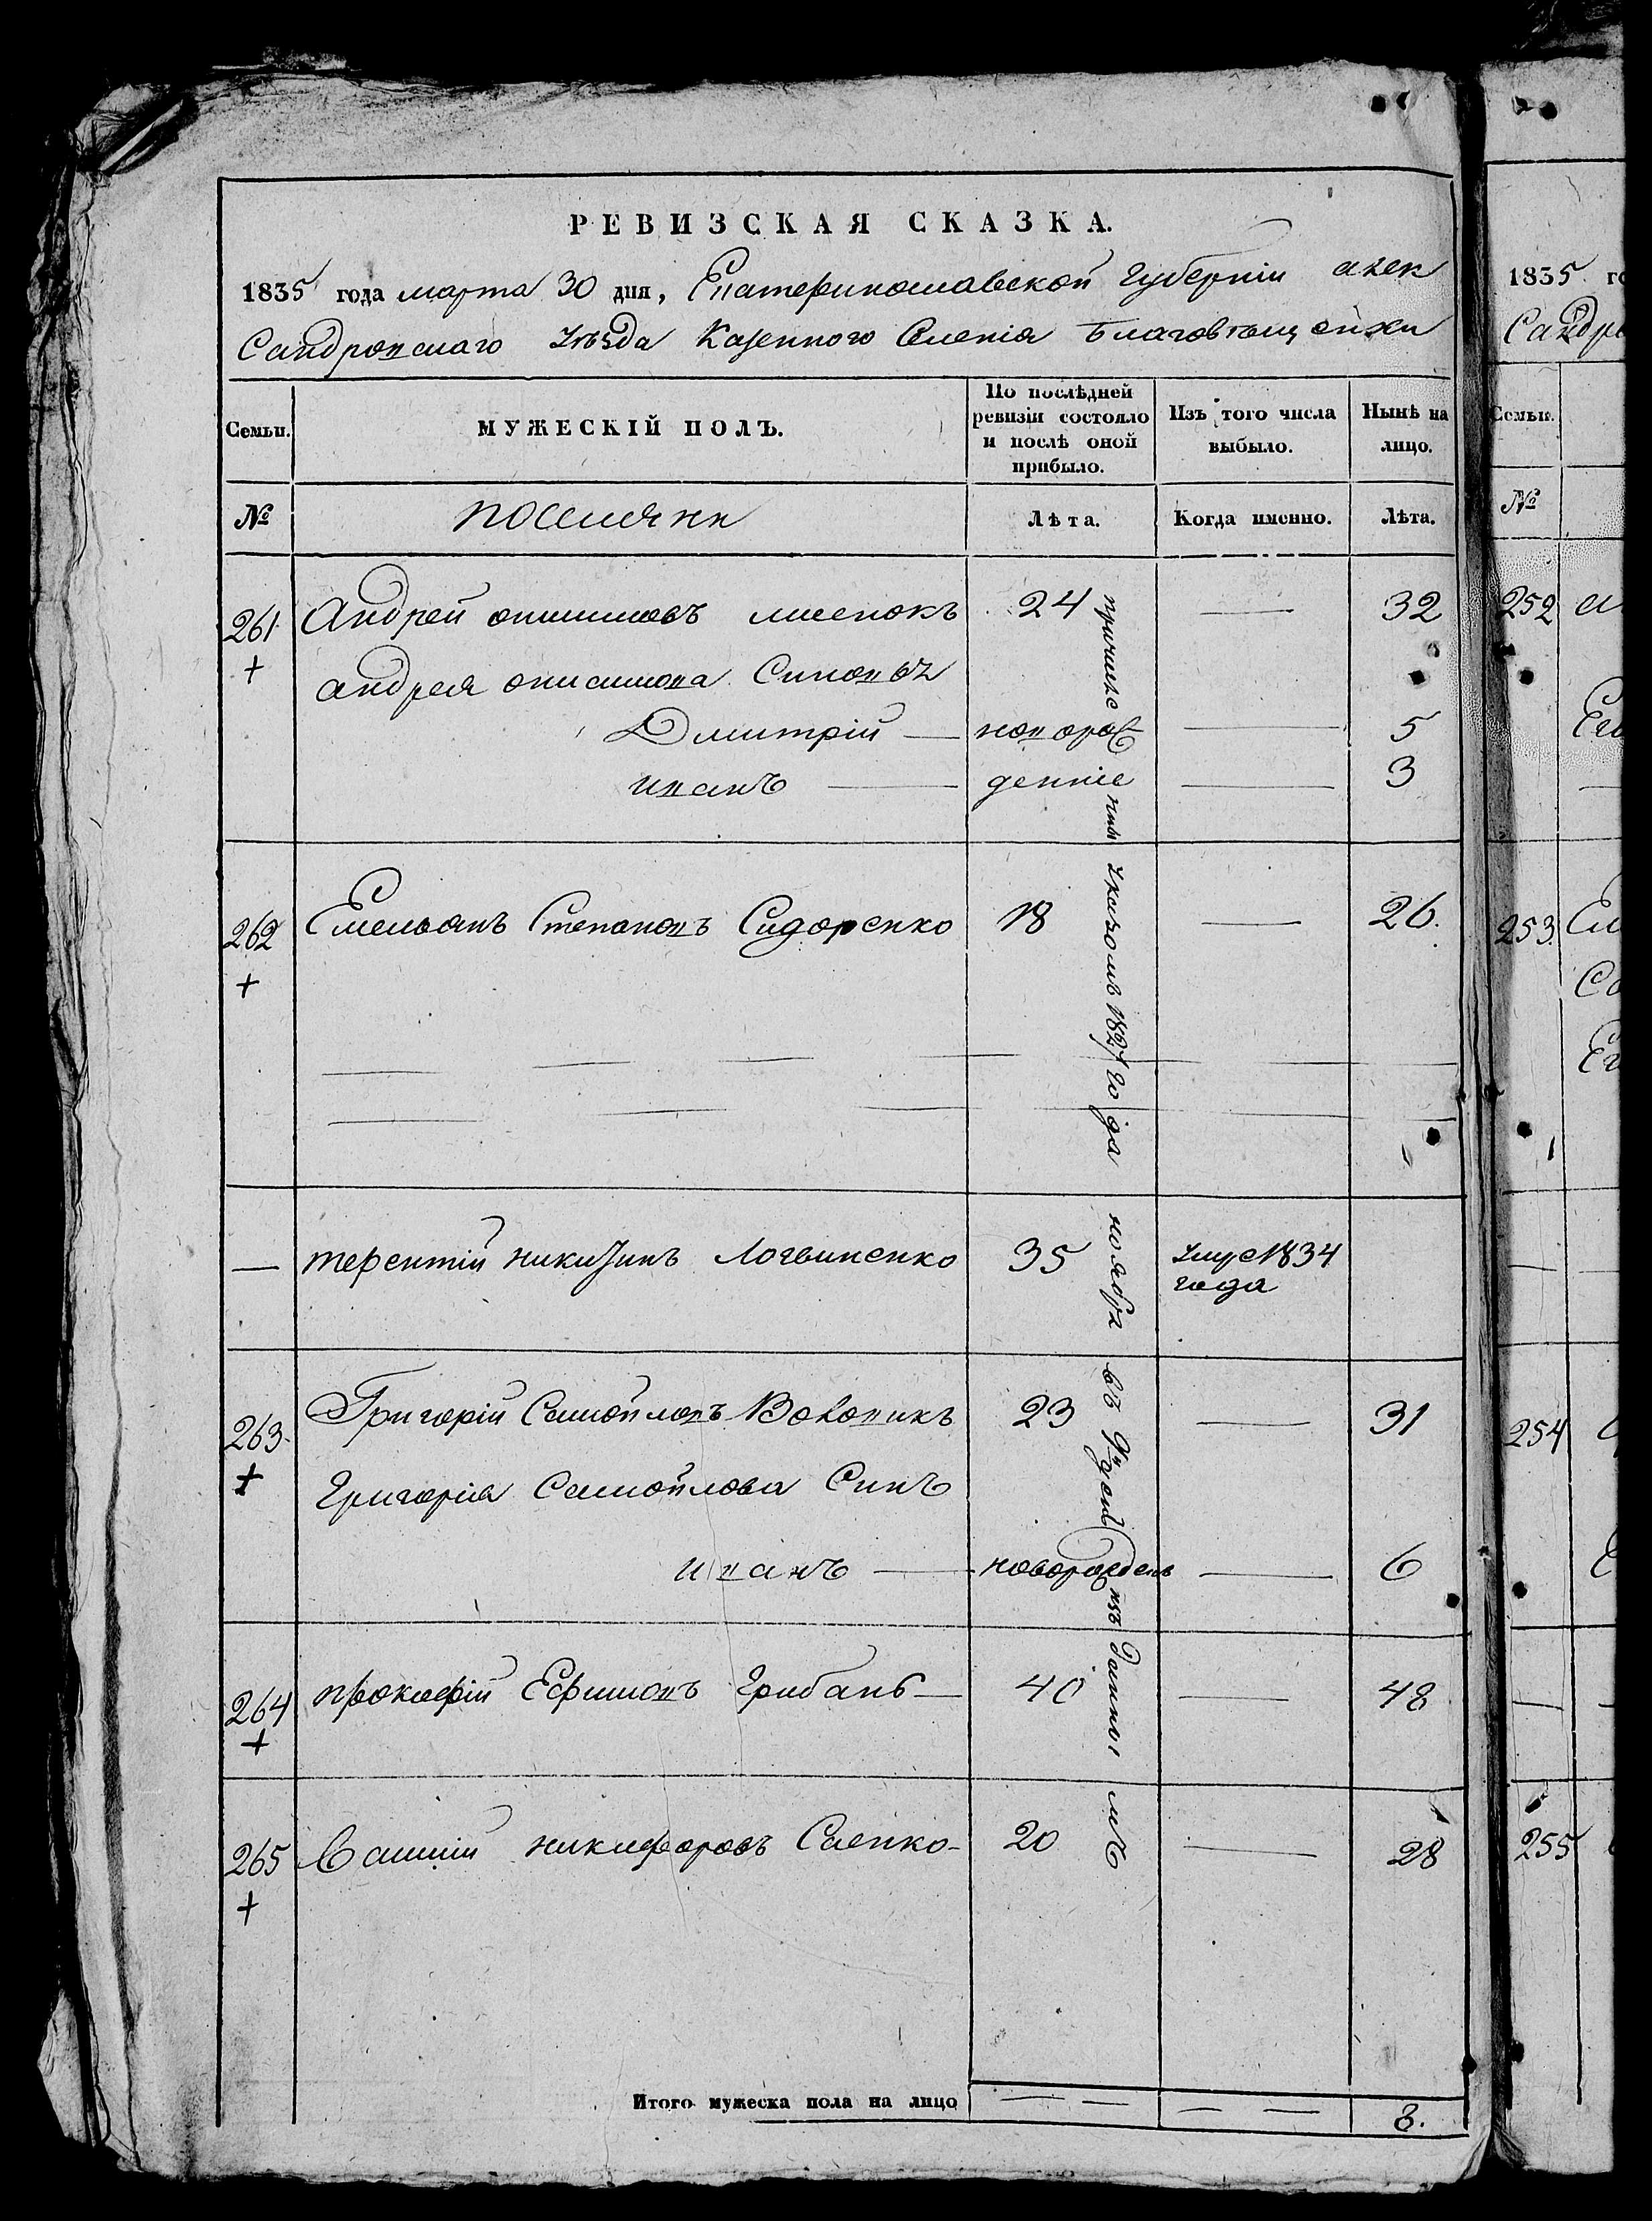 РЕВИЗСКАЯ СКАЗКА.
1835 года марта 30 дня, Екатеринославской губернии алек
сандровскаго уѣзда Казенного Селенія Благовѣщенки
Семьи.
МУЖЕСКІЙ ПОЛЪ.
По послѣдней
ревизіи состояло
и послѣ оной
прибыло.
Изъ того числа
выбыло.
Нынѣ на
лицо.
№
поселяне
Лѣта.
Когда именно.
Лѣта.
261 Андрей онисимовъ 24 — 32
+
андрея онисимова Синовъя
Дмитрій — новорож — 5
иванъ — денніе — 3
262 Емельянъ Степановъ Сидоренко 18 — 26.
+
— терентій никитинъ Логвиненко 35 1834
года
263. Григорій Самойловъ Вовопикъ 23 — 31
+
григорія Самойлова Синъ
иванъ — новорожденъ — 6
264 прокофій Ефимовъ Грибанъ — 40 — 48
+
265 никифоровъ Саенко - 20 — 28
+
указомъ 1827 года
ноября въ 9й день
Итого мужеска пола на лицо — — — — 8.
1835 го
Сандро
Семьи.
№
252
Его
253.
Ем
254
255